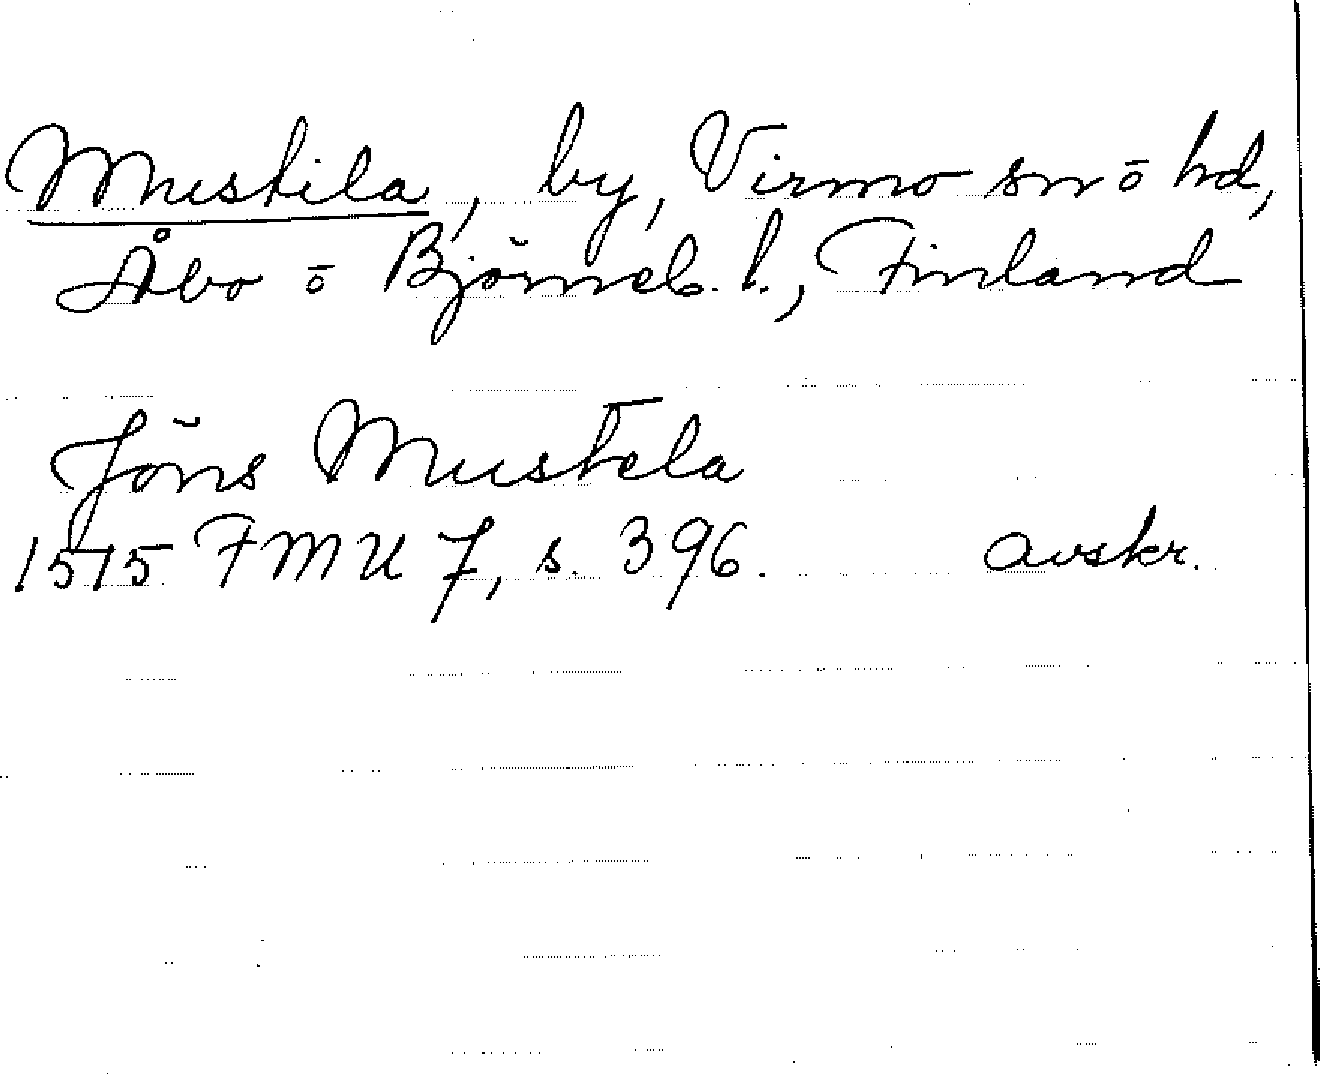 Mustila, by, Virmo sn ō hd,
Åbo ō Björneb. l., Finland
Jöns Mustela
1515 FMU 7, s. 396. avskr.